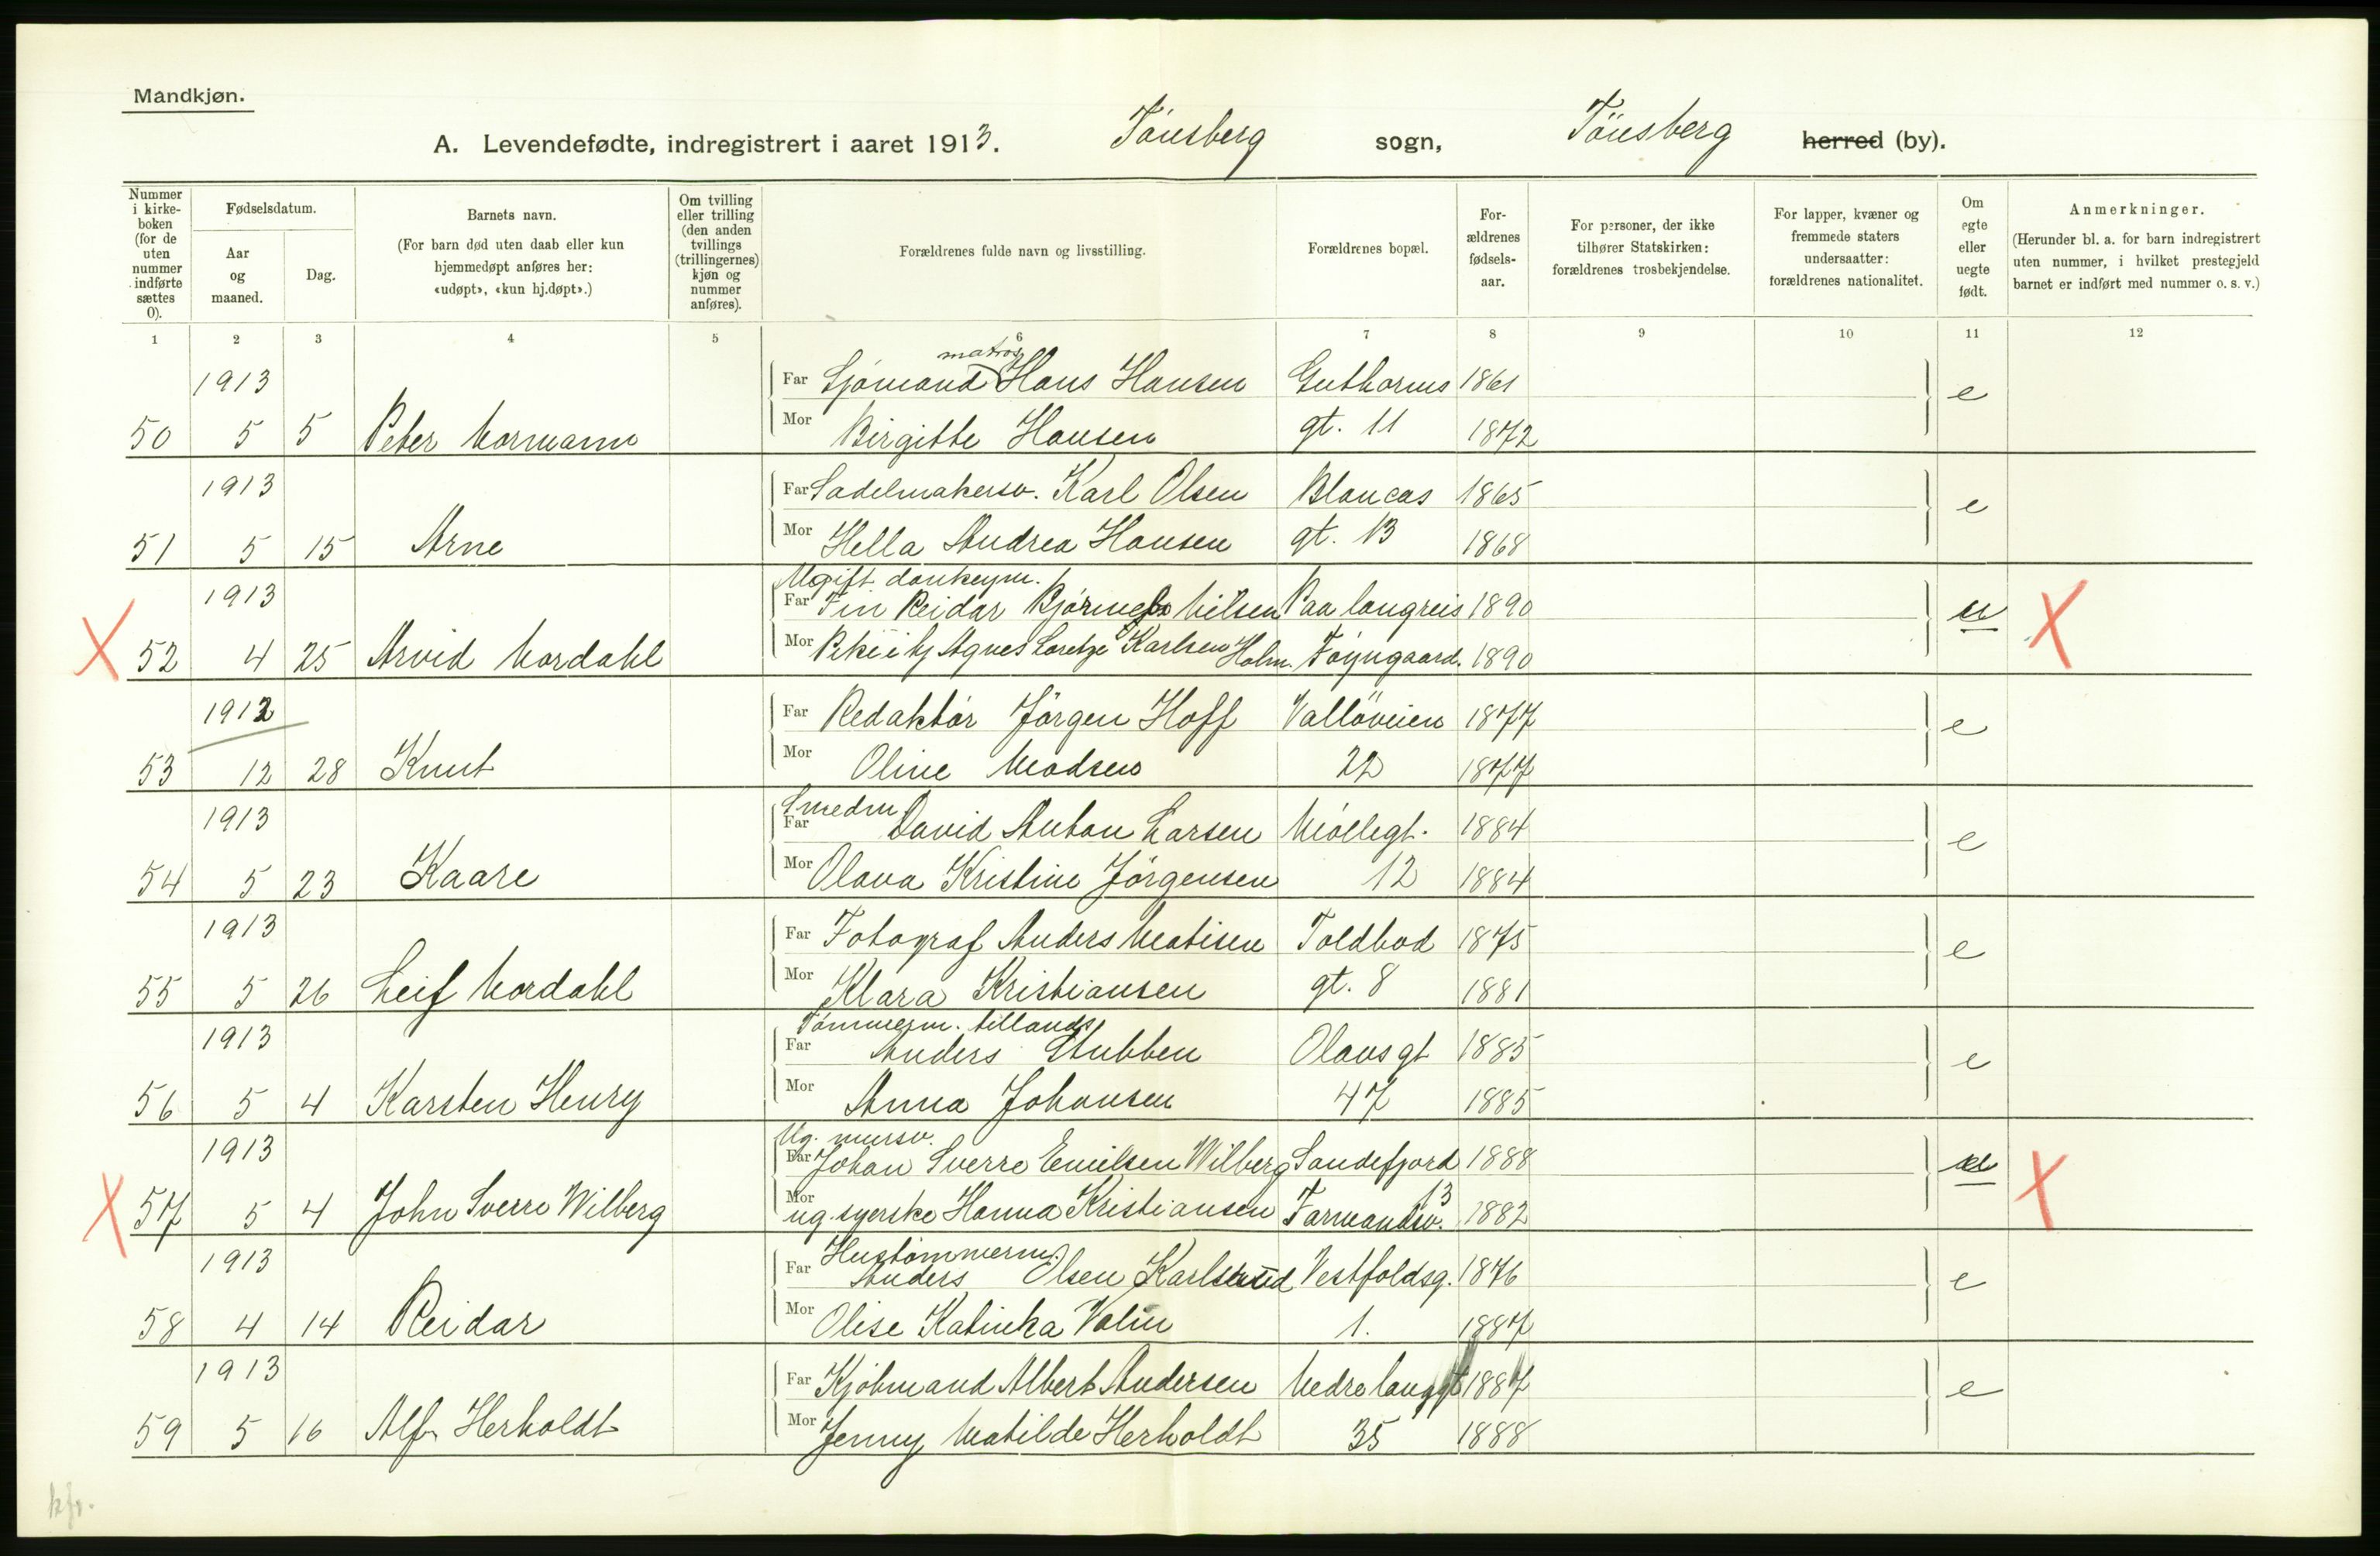 Mandkjøn.
A. Levendefødte, indregistrert i aaret 1913. Tönsberg sogn, Tönsberg herred (by).
Nummer i kirke-boken (for de uten nummer indførte sættes 0).
Fødselsdatum.
Aar og maaned.
Dag.
Barnets navn.
(For barn død uten daab eller kun hjemmedøpt anføres her: «udøpt», «kun hj.døpt».)
Om tvilling eller trilling (den anden tvillings (trillingernes) kjøn og nummer anføres).
Forældrenes fulde navn og livsstilling.
Forældrenes bopæl.
For-ældrenes fødsels-aar.
For personer, der ikke tilhører Statskirken: forældrenes trosbekjendelse.
For lapper, kvæner og fremmede staters undersaatter: forældrenes nationalitet.
Om egte eller uegte født.
Anmerkninger.
(Herunder bl. a. for barn indregistrert uten nummer, i hvilket prestegjeld barnet er indført med nummer o. s. v.)
1 2 3 4 5 6 7 8 9 10 11 12
matros
1913 Far Sjömand Hans Hansen Guthorms 1861 e
50 5 5 Peter Normann Mor Birgitte Hansen gt. 11 1872
1913 Far Sadelmakersv. Karl Olsen Blancas 1865 e
51 5 15 Arne Mor Hella Andrea Hansen gt. 13 1868
Ugift donkeym.
1913 Far Fin Reidar Nilsen Paa langreis 1890 u X
X 52 4 25 Arvid Nordahl Mor Pike i hj Agnes Karlsen Holm. Töyngaard. 1890
1912 Far Redaktör Jörgen Hoff Vallöveien 1877 e
53 12 28 Knut Mor Oline Madsen 22 1877
Smedm
1913 Far David Anton Larsen Möllegt. 1884 e
54 5 23 Kaare Mor Olava Kristine Jörgensen 12 1884
1913 Far Fotograf Anders Matisen Toldbod 1875 e
55 5 26 Leif Nordahl Mor Klara Kristiansen gt. 8 1881
Tömmerm. tillands
1913 Far Anders Stubben Olavsgt 1885 e
56 5 4 Karsten Henry Mor Anna Johansen 47 1885
Ug. mursv.
1913 Far Johan Sverre Emilsen Wilberg Sandefjord 1888 u X
X 57 5 4 John Sverre Wilberg Mor ug. syerske Hanna Kristiansen Farmandsv. 13 1882
Hustömmerm.
1913 Far Anders Olsen Karlsrud Vestfoldsg. 1876 e
58 4 14 Reidar Mor Olise Katinka Valin 1. 1887
1913 Far Kjöbmand Albert Andersen Nedre langgt 1887 e
59 5 16 Alf Herholdt Mor Jenny Matilde Herholdt 35 1888